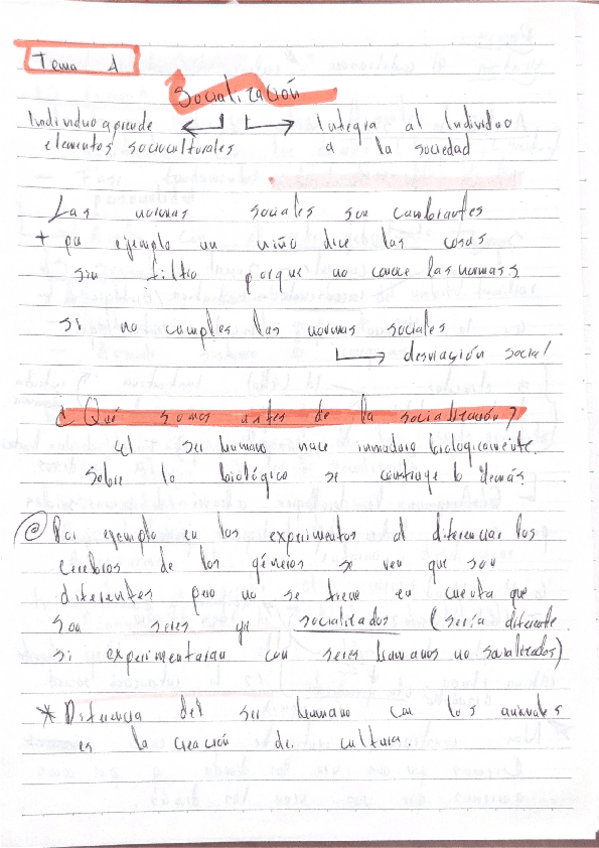 Tema 1
Socialización
Individuo aprende
elementos socioculturales
Integra al Individuo
a la sociedad
Las normas sociales son cambiantes
+ por ejemplo un niño dice las cosas
sin filtro porque no conoce las normas s.
si no cumples las normas sociales
desviación social
¿Qué somos antes de la socialización?
El ser humano nace inmaduro biologicamente.
Sobre lo biológico se construye lo demás.
@ Por ejemplo en los experimentos al diferenciar los
cerebros de los géneros se ven que son
diferentes pero no se tiene en cuenta que
son seres ya socializados (sería diferente
si experimentaran con seres humanos no socializados)
* Diferencia del ser humano con los animales
es la creación de cultura.